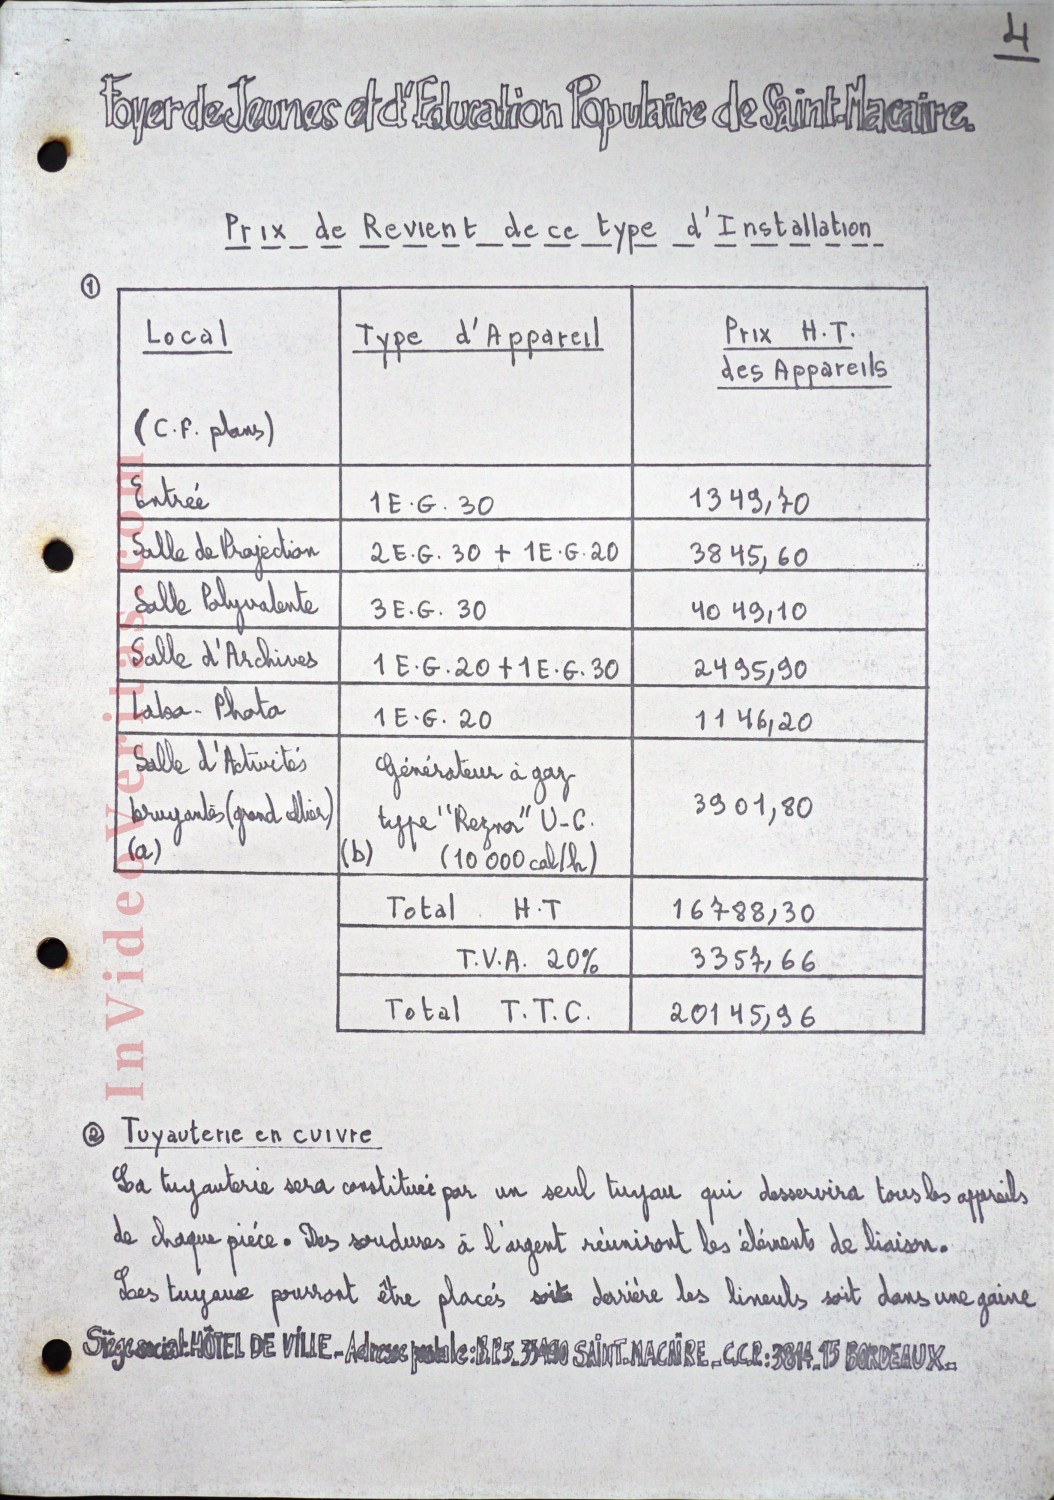 4
Foyer de Jeunes et d'Education Populaire de Saint-Macaire.
Prix de Revient de ce type d'Installation
①
Local
(C.F. plans)
Type d'Appareil
Prix H.T.
des Appareils
Entrée
1 E.G. 30
1349,70
Salle de Projection
2 E.G. 30 + 1 E.G. 20
3845,60
Salle Polyvalente
3 E.G. 30
4049,10
Salle d'Archives
1 E.G. 20 + 1 E.G. 30
2495,90
Labo-Photo
1 E.G. 20
1146,20
Salle d'Activités
bruyantes (grand cellier)
(a)
Générateur à gaz
type "Reznor" U-C.
(b) (10 000 cal/h)
3901,80
Total H.T
16788,30
T.V.A. 20%
3357,66
Total T.T.C.
20145,96
② Tuyauterie en cuivre
La tuyauterie sera constituée par un seul tuyau qui desservira tous les appareils
de chaque piéce. Des soudures à l'argent réuniront les éléments de liaison.
Les tuyaux pourront être placés soit derriére les lineuls soit dans une gaine
Siège social: HÔTEL DE VILLE - Adresse postale: B.P.5. 33490 SAINT-MACAIRE - C.C.P.: 3814-15 BORDEAUX -
InVideoVeritas.com